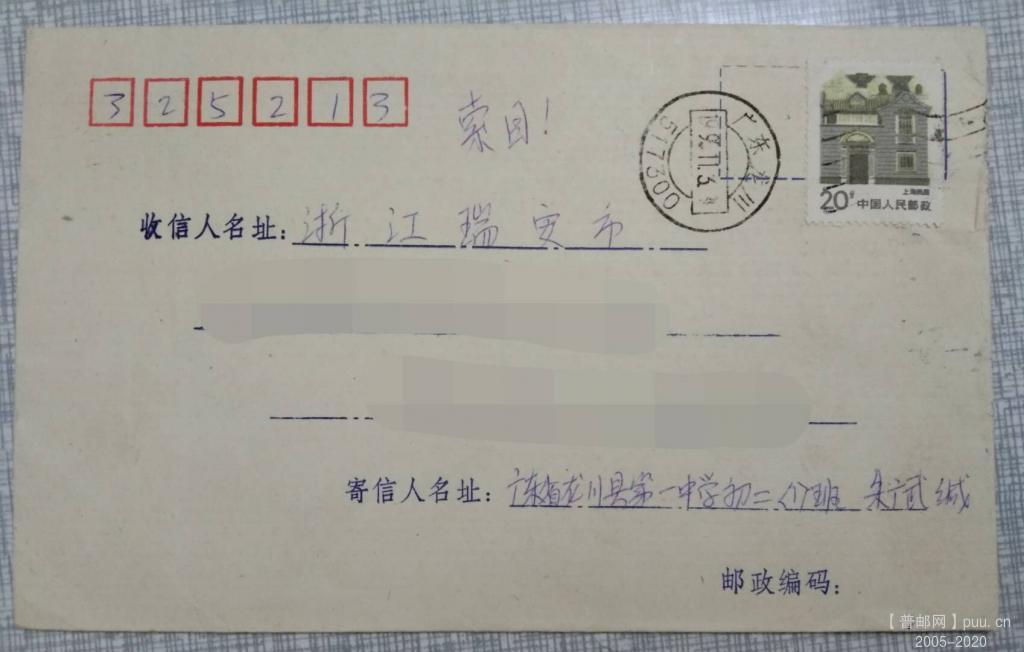 325213
索目！
广东龙川
517300
上海民居
20分 中国人民邮政
收信人名址：浙江瑞安市
寄信人名址：广东省龙川县第一中学初二（7）班 朱 武 缄
邮政编码：
【普邮网】puu.cn
2005-2020